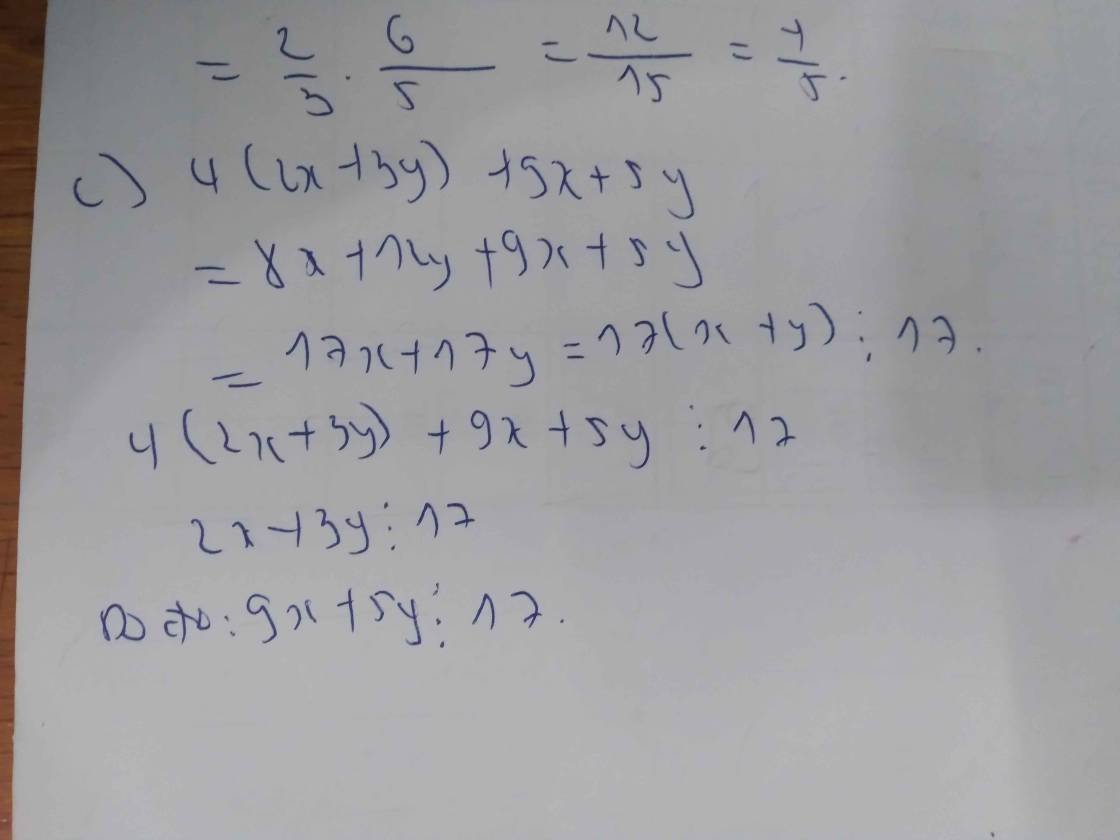 = 2/3 . 6/5 = 12/15 = 4/5.
c) 4(2x+3y) +9x+5y
= 8x+12y+9x+5y
= 17x+17y = 17(x+y) ⋮ 17.
4(2x+3y) + 9x+5y ⋮ 17
2x+3y ⋮ 17
Do đó: 9x+5y ⋮ 17.